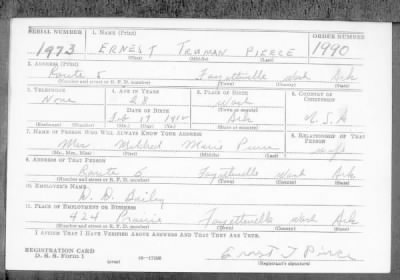 SERIAL NUMBER 1. NAME (Print) ORDER NUMBER
1973 ERNEST TRUMAN PIERCE 1990
(First) (Middle) (Last)
2. ADDRESS (Print)
Route 5 Fayetteville Wash Ark
(Number and street or R. F. D. number) (Town) (County) (State)
3. TELEPHONE 4. AGE IN YEARS 5. PLACE OF BIRTH 6. COUNTRY OF CITIZENSHIP
None 28 Wash
DATE OF BIRTH (Town or county)
Feb 17 1912 Ark U.S.A
(Exchange) (Number) (Mo.) (Day) (Yr.) (State or country)
7. NAME OF PERSON WHO WILL ALWAYS KNOW YOUR ADDRESS 8. RELATIONSHIP OF THAT PERSON
Mrs Mildred Marie Pierce wife
(Mr., Mrs., Miss) (First) (Middle) (Last)
9. ADDRESS OF THAT PERSON
Route 5 Fayetteville Wash Ark
(Number and street or R. F. D. number) (Town) (County) (State)
10. EMPLOYER'S NAME
Bailey
11. PLACE OF EMPLOYMENT OR BUSINESS
424 Prairie Fayetteville Wash Ark
(Number and street or R. F. D. number) (Town) (County) (State)
I AFFIRM THAT I HAVE VERIFIED ABOVE ANSWERS AND THAT THEY ARE TRUE.
REGISTRATION CARD
D. S. S. Form 1 (over) 16—17105 Ernest T Pierce
(Registrant's signature)